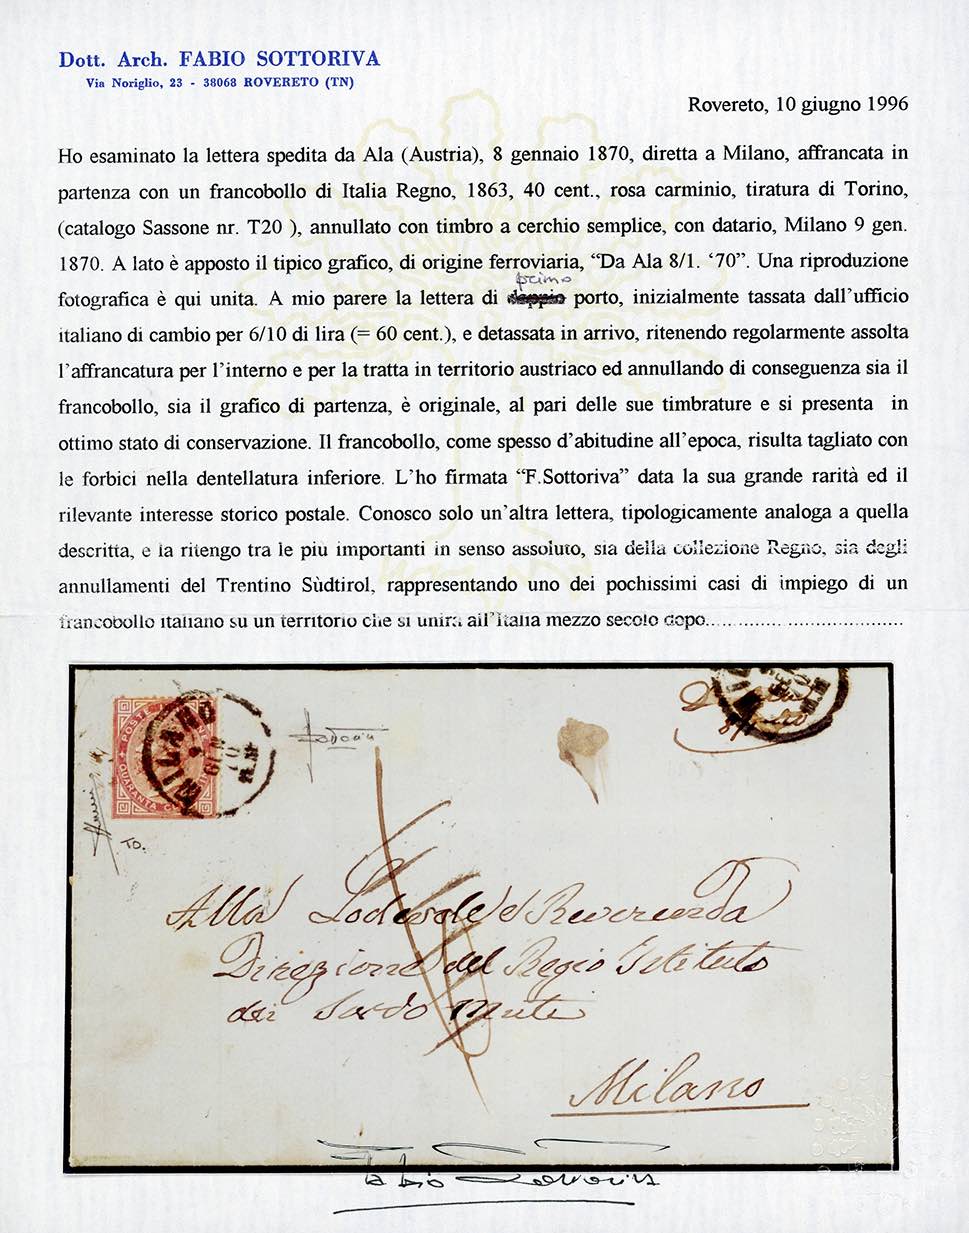 Dott. Arch. FABIO SOTTORIVA
Via Noriglio, 23 - 38068 ROVERETO (TN)
Rovereto, 10 giugno 1996
Ho esaminato la lettera spedita da Ala (Austria), 8 gennaio 1870, diretta a Milano, affrancata in
partenza con un francobollo di Italia Regno, 1863, 40 cent., rosa carminio, tiratura di Torino,
(catalogo Sassone nr. T20 ), annullato con timbro a cerchio semplice, con datario, Milano 9 gen.
1870. A lato è apposto il tipico grafico, di origine ferroviaria, “Da Ala 8/1. ‘70”. Una riproduzione
primo
fotografica è qui unita. A mio parere la lettera di doppio porto, inizialmente tassata dall’ufficio
italiano di cambio per 6/10 di lira (= 60 cent.), e detassata in arrivo, ritenendo regolarmente assolta
l’affrancatura per l’interno e per la tratta in territorio austriaco ed annullando di conseguenza sia il
francobollo, sia il grafico di partenza, è originale, al pari delle sue timbrature e si presenta in
ottimo stato di conservazione. Il francobollo, come spesso d’abitudine all’epoca, risulta tagliato con
le forbici nella dentellatura inferiore. L’ho firmata “F.Sottoriva” data la sua grande rarità ed il
rilevante interesse storico postale. Conosco solo un’altra lettera, tipologicamente analoga a quella
descritta, e la ritengo tra le più importanti in senso assoluto, sia della collezione Regno, sia degli
annullamenti del Trentino Sùdtirol, rappresentando uno dei pochissimi casi di impiego di un
francobollo italiano su un territorio che si unirà all’Italia mezzo secolo dopo....................................
POSTE
QUARANTA C
MILANO
9
GEN
70
TO.
Alla Lodevole e Reverenda
Direzione del Regio Istituto
dei Sordo Muti
Milano
Fabio Sottoriva